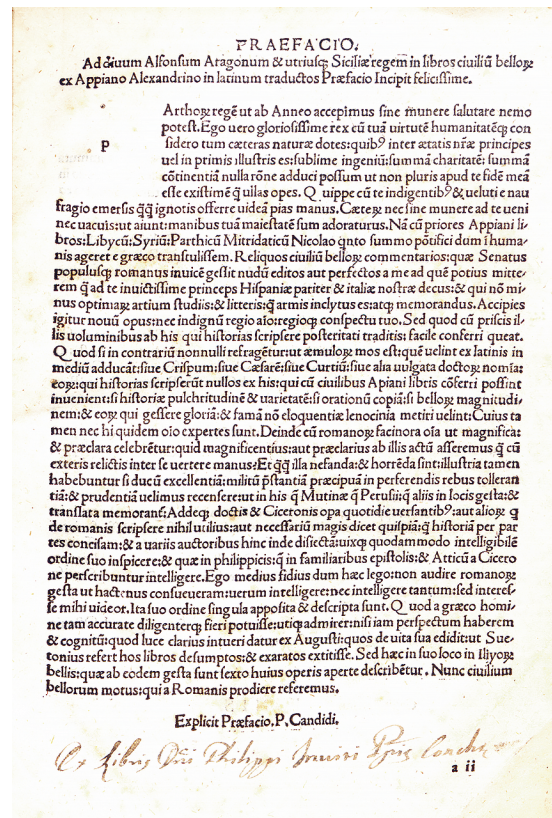 PRAEFACIO.
Ad diuum Alfonsum Aragonum & utriusqꝫ Siciliæ regem in libros ciuiliū belloꝝ
ex Appiano Alexandrino in latinum traductos Præfacio Incipit felicissime.
P
Arthoꝝ regē ut ab Anneo accepimus sine munere salutare nemo
potest. Ego uero gloriosissime rex cū tuā virtutē humanitatēqꝫ con
sidero tum cæteras naturæ dotes: quibꝰ inter ætatis nr̄æ principes
uel in primis illustris es: sublime ingeniū: summā charitatē: summā
cōtinentiā nulla rōne adduci possum ut non pluris apud te fidē meā
esse existimē q̄ ullas opes. Q uippe cū te indigentibꝰ & ueluti e nau
fragio emersis q̄q̄ ignotis offerre uideā pias manus. Cæteꝝ nec sine munere ad te ueni
nec uacuis: ut aiunt: manibus tuā maiestatē sum adoraturus. Nā cū priores Appiani li
bros: Libycū: Syriū: Parthicū Mitridaticū Nicolao qͥnto summo pōtifici dum ī huma‐
nis ageret e græco transtulissem. Reliquos ciuiliū belloꝝ commentarios: quæ Senatus
populusqꝫ romanus inuicē gessit nudū editos aut perfectos a me ad quē potius mitte‐
rem q̄ ad te inuictissime princeps Hispaniæ pariter & italiæ nostræ decus: & qui nō mi
nus optimaꝝ artium studiis: & litteris: q̄ armis inclytus es: atqꝫ memorandus. Accipies
igitur nouū opus: nec indignū regio aīo: regioqꝫ conspectu tuo. Sed quod cū priscis il‐
lis uoluminibus ab his qui historias scripsere posteritati traditis: facile conferri queat.
Q uod si in contrariū nonnulli refragētur: ut æmuloꝝ mos est: quē uelint ex latinis in
mediū adducāt: siue Crispum: siue Cæsarē: siue Curtiū: siue alia uulgata doctoꝝ nomīa:
eoꝝ: qui historias scripserūt nullos ex his: qui cū ciuilibus Apiani libris cōferri possint
inuenient: si historiæ pulchritudinē & uarietatē: si orationū copiā: si belloꝝ magnitudi
nem: & eoꝝ qui gessere gloriā: & famā nō eloquentiæ lenocinia metiri uelint: Cuius ta
men nec hi quidem oīo expertes sunt. Deinde cū romanoꝝ facinora oīa ut magnifica:
& præclara celebrētur: quid magnificentius: aut præclarius ab illis actū asseremus q̄ cū
exteris relictis inter se uertere manus? Et q̄q̄ illa nefanda: & horrēda sint: illustria tamen
habebuntur si ducū excellentiā: militū p̄stantiā præcipuā in perferendis rebus tolleran
tiā: & prudentiā uelimus recensere: ut in his q̄ Mutinæ q̄ Perusii: q̄ aliis in locis gesta: &
translata memorāt. Addeqꝫ doctis & Ciceronis opa quotidie uersantibꝰ: aut alioꝝ q̄
de romanis scripsere nihil utilius: aut necessariū magis dicet quispiā: q̄ historiā per par
tes concisam: & a uariis auctoribus hinc inde disiectā: uixqꝫ quodam modo intelligibilē
ordine suo inspicere: & quæ in philippicis: q̄ in familiaribus epistolis: & Atticū a Cicero
ne perscribuntur intelligere. Ego medius fidius dum hæc lego: non audire romanoꝝ
gesta ut hactenus consueueram: uerum intelligere: nec intelligere tantum: sed interes‐
se mihi uideor. Ita suo ordine singula apposita & descripta sunt. Q uod a græco homi‐
ne tam accurate diligenterqꝫ fieri potuisse: utiqꝫ admirer: nisi iam perspectum haberem
& cognitū: quod luce clarius intueri datur ex Augusti: quos de uita sua edidit: ut Sue‐
tonius refert hos libros desumptos: & exaratos extitisse. Sed hæc in suo loco in Iliyoꝝ
bellis: quæ ab eodem gesta sunt sexto huius operis aperte describētur. Nunc ciuilium
bellorum motus: qui a Romanis prodiere referemus.
Explicit Præfacio. P. Candidi.
Ex Libris Dñi Philippi
a ii